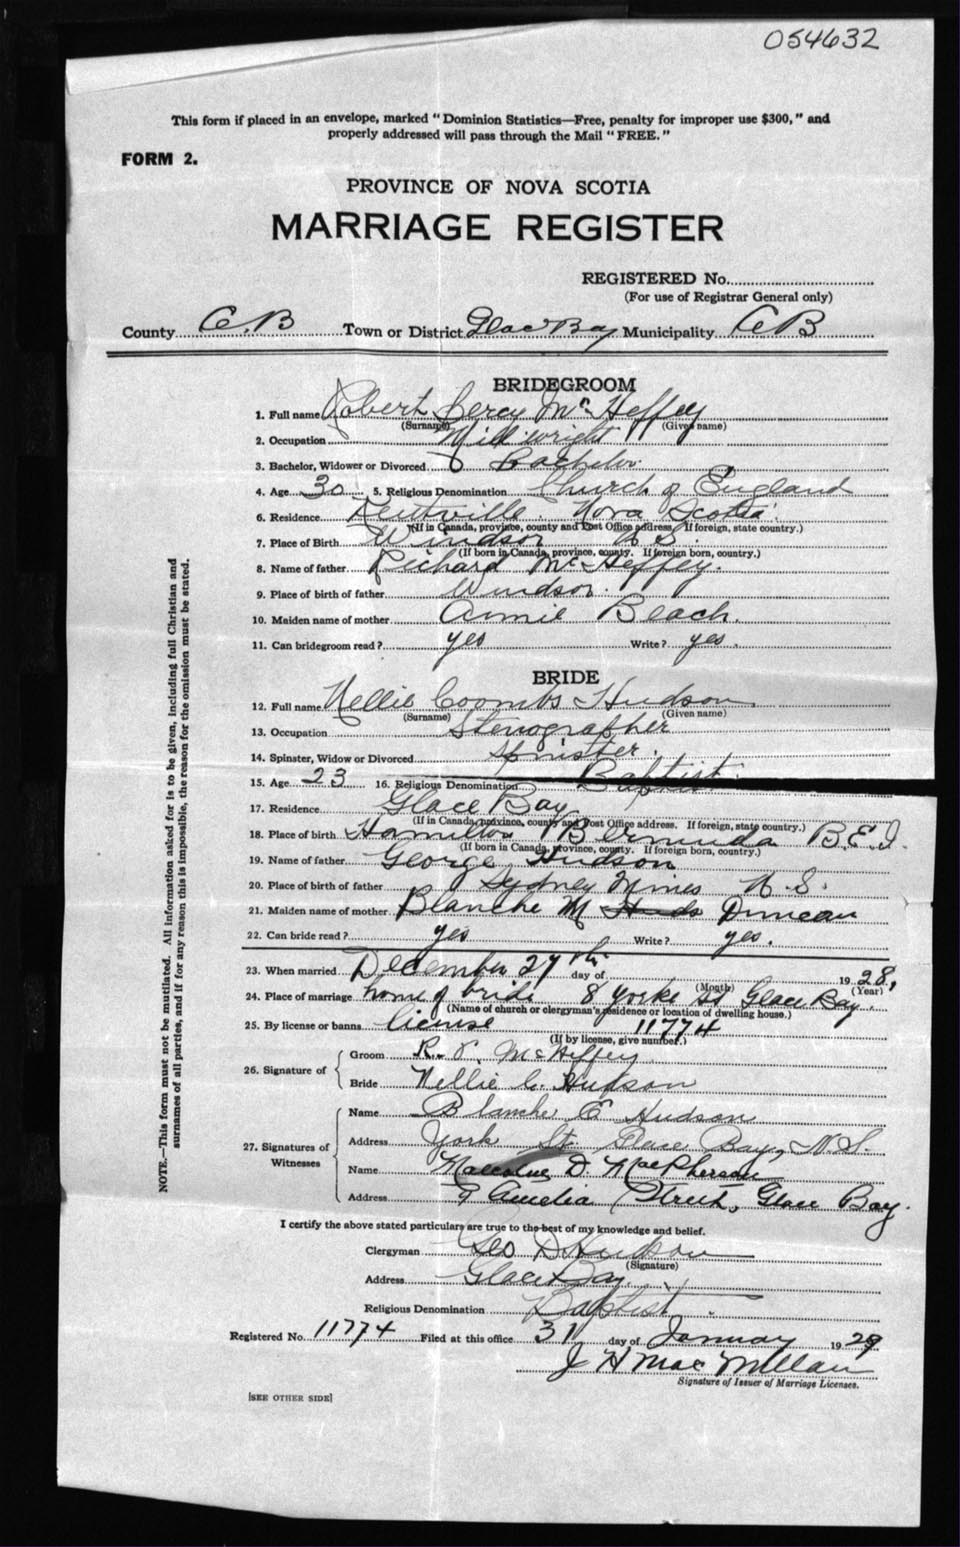 054632
This form if placed in an envelope, marked "Dominion Statistics—Free, penalty for improper use $300," and
properly addressed will pass through the Mail "FREE."
FORM 2.
PROVINCE OF NOVA SCOTIA
MARRIAGE REGISTER
REGISTERED No.
(For use of Registrar General only)
County C.B Town or District Glace Bay Municipality C.B
BRIDEGROOM
1. Full name Robert Percy McHeffey
(Surname) (Given name)
2. Occupation Millwright
3. Bachelor, Widower or Divorced Bachelor
4. Age 30 5. Religious Denomination Church of England
6. Residence Kentville. Nova Scotia.
(If in Canada, province, county and Post Office address. If foreign, state country.)
7. Place of Birth Windsor N.S.
(If born in Canada, province, county. If foreign born, country.)
8. Name of father Richard McHeffey.
9. Place of birth of father Windsor.
10. Maiden name of mother Annie Beach.
11. Can bridegroom read? yes Write? yes.
BRIDE
12. Full name Nellie Coombs Hudson
(Surname) (Given name)
13. Occupation Stenographer
14. Spinster, Widow or Divorced Spinster.
15. Age 23 16. Religious Denomination Baptist.
17. Residence Glace Bay
(If in Canada, province, county and Post Office address. If foreign, state country.)
18. Place of birth Hamilton Bermuda B.E.I.
(If born in Canada, province, county. If foreign born, country.)
19. Name of father George Hudson
20. Place of birth of father Sydney Mines N.S.
21. Maiden name of mother Blanche M Huds Duncan
22. Can bride read? yes Write? yes.
23. When married December 27th day of 1928,
(Month) (Year)
24. Place of marriage home of bride 8 Yorke St Glace Bay.
(Name of church or clergyman's residence or location of dwelling house.)
25. By license or banns license 11774
(If by license, give number.)
26. Signature of Groom R. P. McHeffey
Bride Nellie C. Hudson
27. Signatures of Witnesses Name Blanche E Hudson
Address York St. Glace Bay, N.S.
Name Malcolm D. MacPherson
Address 9 Amelia Street, Glace Bay.
I certify the above stated particulars are true to the best of my knowledge and belief.
Clergyman Geo D Hudson
(Signature)
Address Glace Bay.
Religious Denomination Baptist.
Registered No. 11774 Filed at this office 31 day of January 1929
J H MacMillan
Signature of Issuer of Marriage Licenses.
[SEE OTHER SIDE]
NOTE.—This form must not be mutilated. All information asked for is to be given, including full Christian and
surnames of all parties, and if for any reason this is impossible, the reason for the omission must be stated.